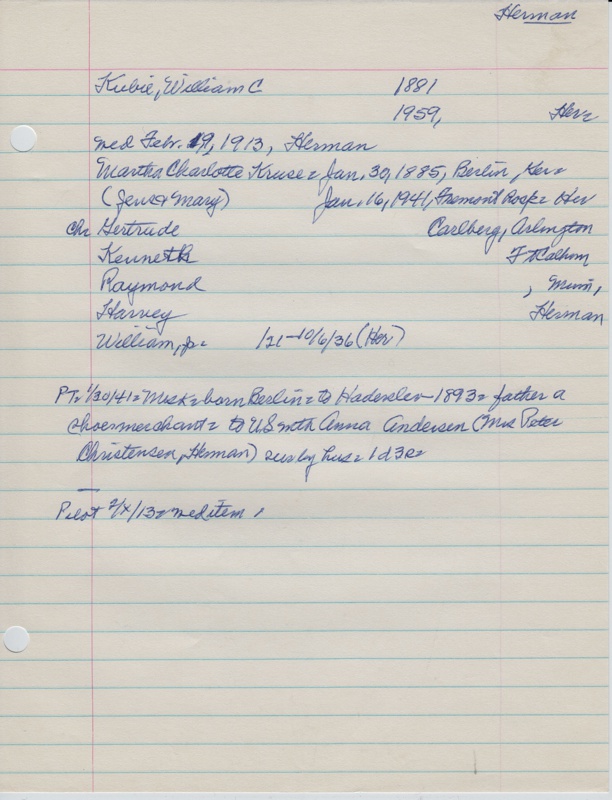 Herman
Kubie, William C 1881
1959, Her=
wed Feb. 19, 1913, Herman
Martha Charlotte Kruse= Jan. 30, 1885, Berlin, Ker=
(Jens & Mary) Jan. 16, 1941, Fremont Hosp= Her
Ch Gertrude Carlberg, Arlington
Kenneth Ft Calhoun
Raymond , Minn,
Harvey Herman
William, Jr= /21-10/6/36 (Her)
PT= 1/30/41= Mrs K= born Berlin= to Haderslev 1893= father a
shoemerchant= to US with Anna Andersen (Mrs Peter
Christensen, Herman) sur by hus= 1d 3s=
Pilot 2/ /13= wed item,